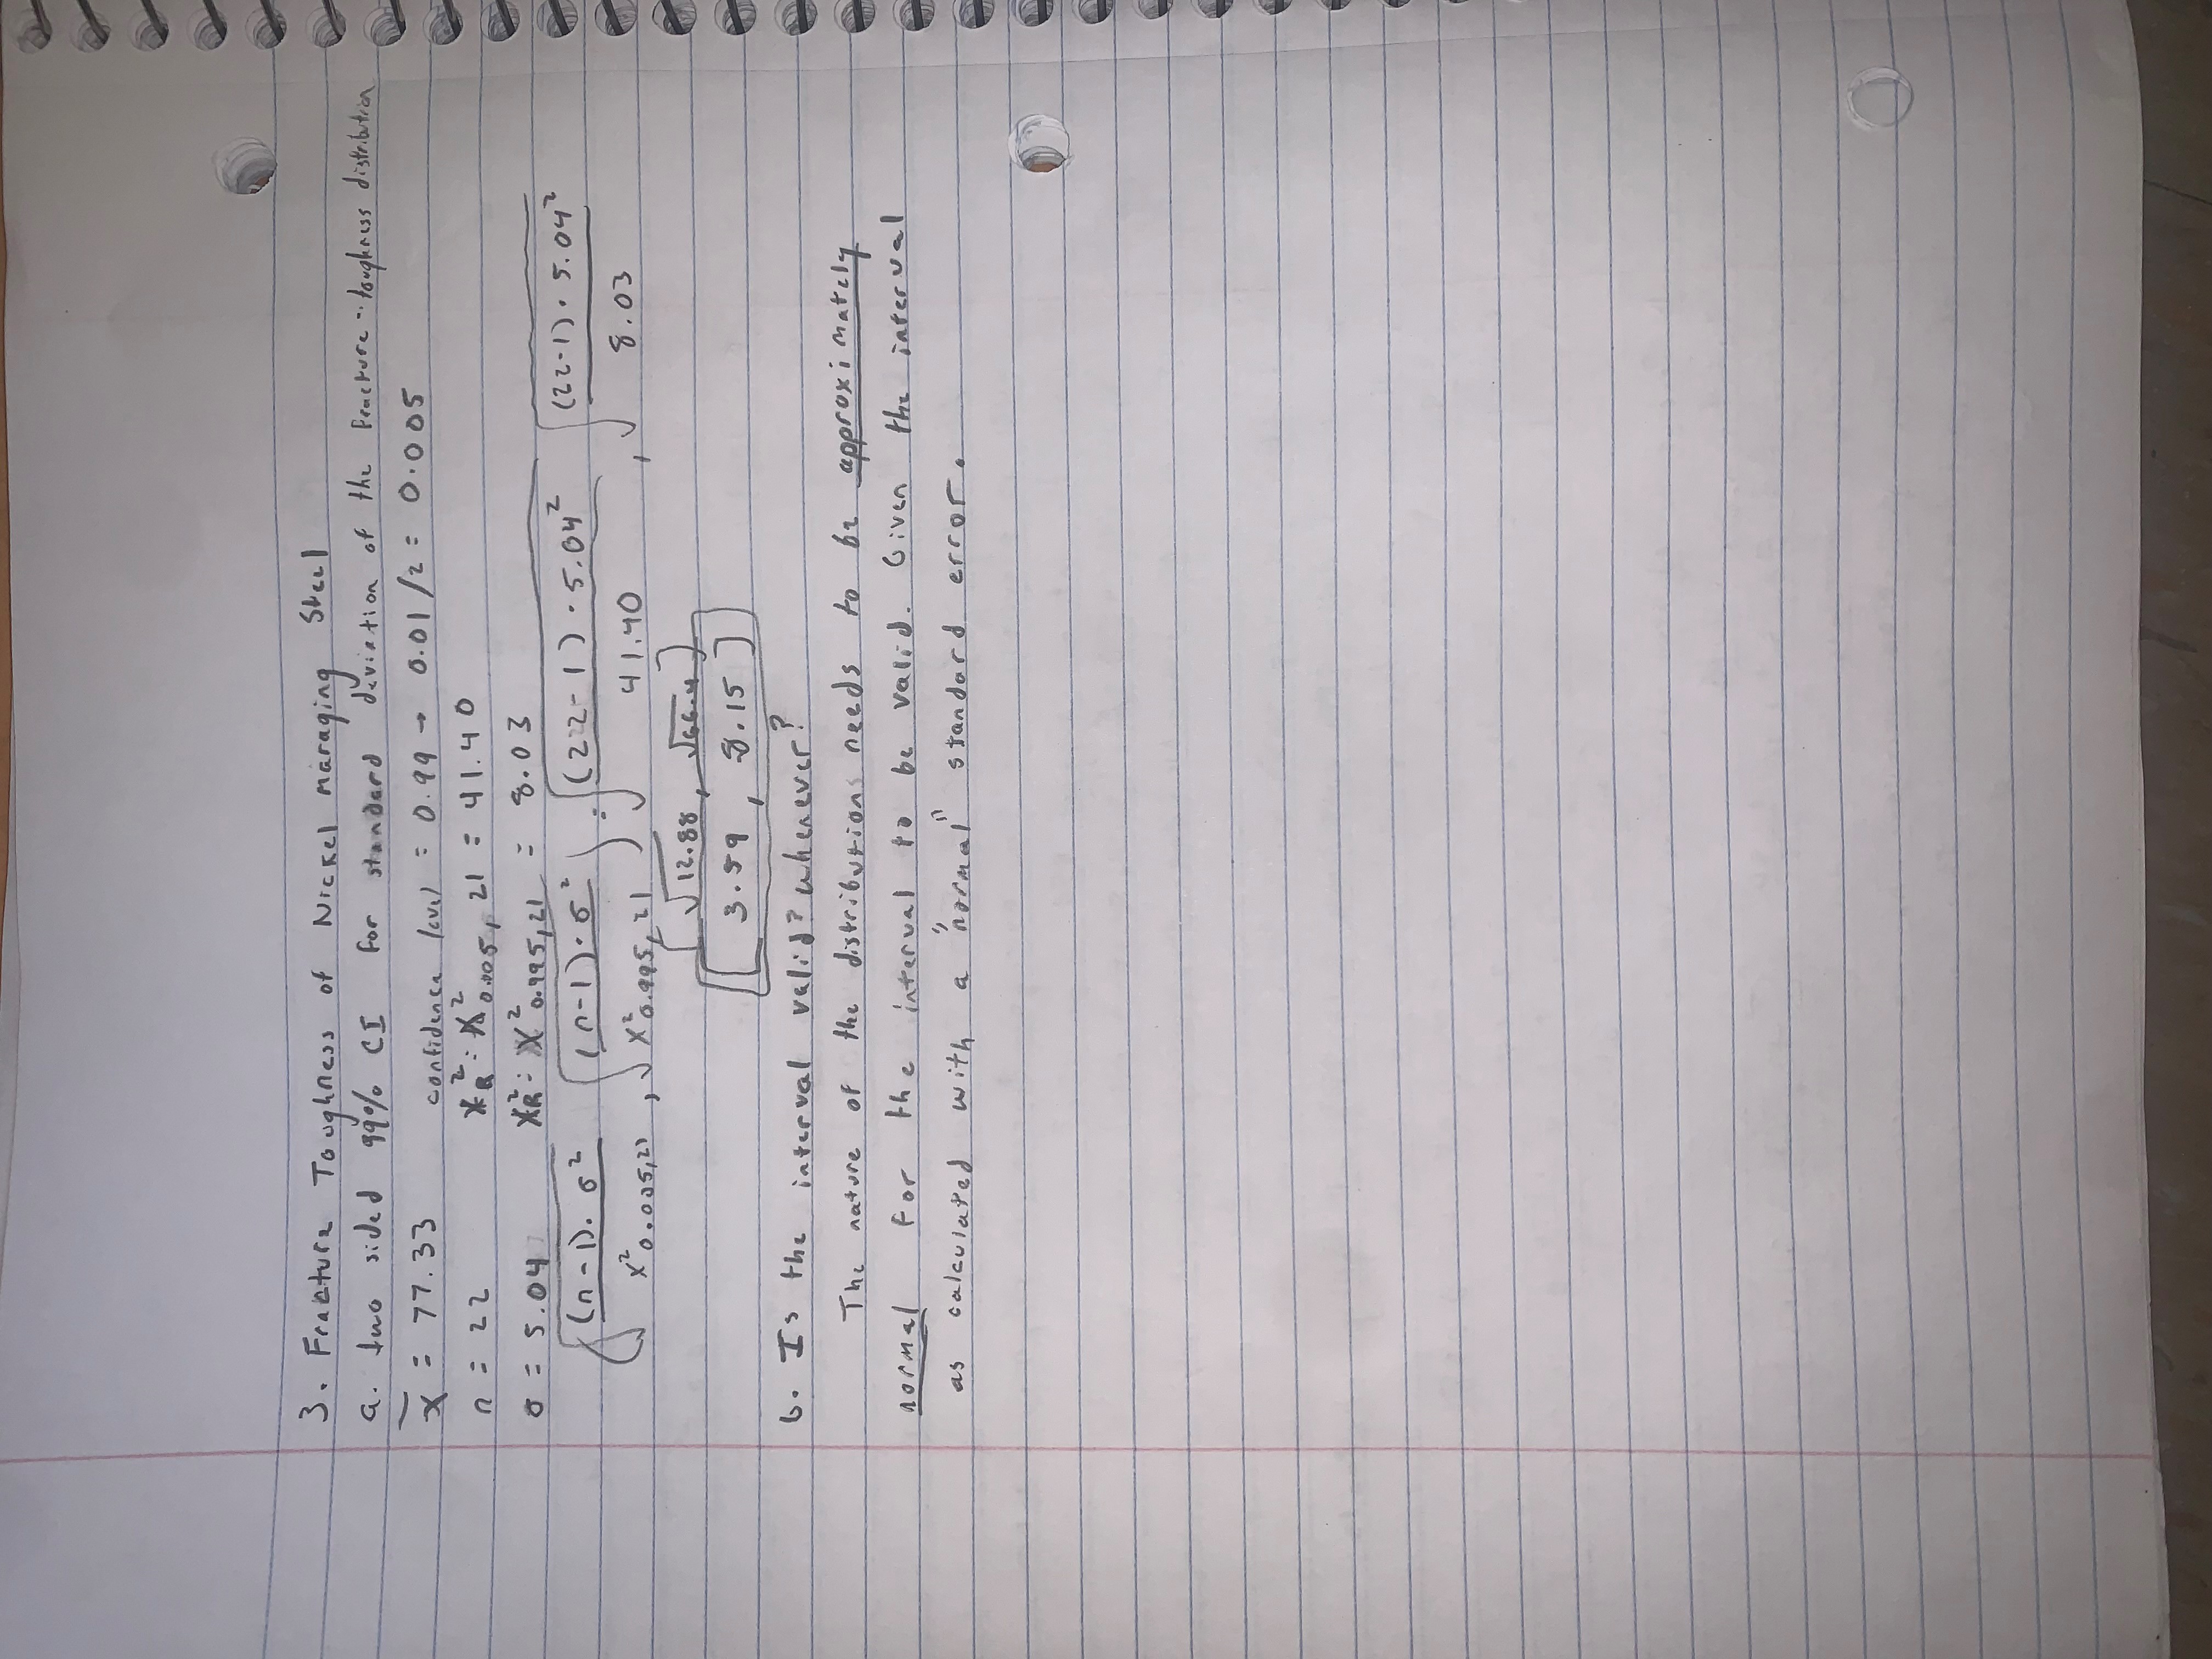 3. Fracture Toughness of Nickel Maraging Steel
a. two sided 99% CI for standard diviation of the fracture-toughness distribution
x̄ = 77.33 confidence level = 0.99 → 0.01/2 = 0.005
n = 22 X²R = X²0.005, 21 = 41.40
σ = 5.04 X²R = X²0.995,21 = 8.03
(√((n-1)·σ²/X²0.005,21), √((n-1)·σ²/X²0.995,21)) = √((22-1)·5.04²/41.40), √((22-1)·5.04²/8.03)
[√12.88, √66.4]
[3.59, 8.15]
b. Is the interval valid? whenever?
The nature of the distributions needs to be approximately
normal for the interval to be valid. Given the interval
as calculated with a "normal" standard error.